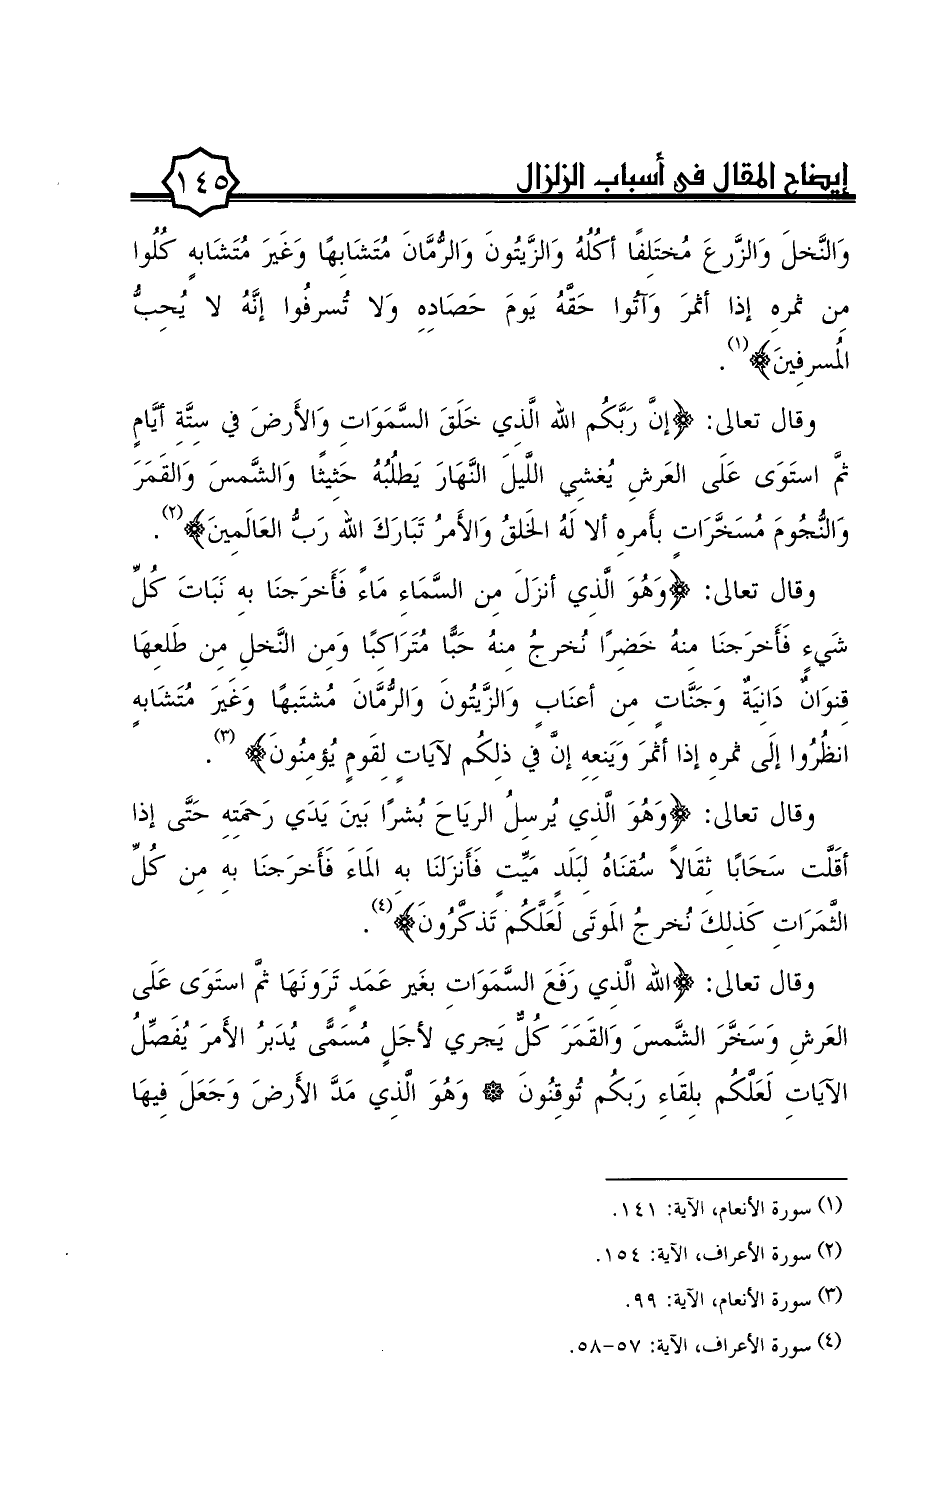 إيضاح المقال في أسباب الزلزال ١٤٥
وَالنَّخلَ وَالزَّرعَ مُختَلفًا أكُلُهُ وَالزَّيتُونَ وَالرُّمَّانَ مُتَشَابهًا وَغَيرَ مُتَشَابهٍ كُلُوا
مِن ثمرِهِ إذا أثمرَ وَآتُوا حَقَّهُ يَومَ حَصَادِهِ وَلا تُسرفُوا إنَّهُ لا يُحِبُّ
المُسرفِينَ﴾(١).
وقال تعالى: ﴿إنَّ رَبَّكُم الله الَّذي خَلَقَ السَّمَوَاتِ وَالأَرضَ في سِتَّةِ أيَّامٍ
ثمَّ استَوَى عَلَى العَرشِ يُغشي اللَّيلَ النَّهَارَ يَطلُبُهُ حَثيثًا وَالشَّمسَ وَالقَمَرَ
وَالنُّجُومَ مُسَخَّرَاتٍ بأمرِهِ ألا لَهُ الخَلقُ وَالأمرُ تَبَارَكَ الله رَبُّ العَالَمينَ﴾(٢).
وقال تعالى: ﴿وَهُوَ الَّذي أنزَلَ مِن السَّمَاءِ مَاءً فَأَخرَجنَا بهِ نَبَاتَ كُلِّ
شَيءٍ فَأَخرَجنَا مِنهُ خَضِرًا نُخرجُ مِنهُ حَبًّا مُتَرَاكبًا وَمِن النَّخلِ مِن طَلعِهَا
قِنوَانٌ دَانيَةٌ وَجَنَّاتٍ مِن أعنَابٍ وَالزَّيتُونَ وَالرُّمَّانَ مُشتَبهًا وَغَيرَ مُتَشَابهٍ
انظُرُوا إلَى ثمرِهِ إذا أثمرَ وَيَنعِهِ إنَّ في ذلِكُم لآيَاتٍ لِقَومٍ يُؤمنُونَ﴾(٣).
وقال تعالى: ﴿وَهُوَ الَّذي يُرسِلُ الريَاحَ بُشرًا بَينَ يَدَي رَحمَتِهِ حَتَّى إذا
أقَلَّت سَحَابًا ثِقَالاً سُقنَاهُ لِبَلَدٍ مَيِّتٍ فَأنزَلنَا بهِ المَاءَ فَأَخرَجنَا بهِ مِن كُلِّ
الثَّمَرَاتِ كَذلِكَ نُخرجُ المَوتَى لَعَلَّكُم تَذكَّرُونَ﴾(٤).
وقال تعالى: ﴿الله الَّذي رَفَعَ السَّمَوَاتِ بغَيرِ عَمَدٍ تَرَونَهَا ثمَّ استَوَى عَلَى
العَرشِ وَسَخَّرَ الشَّمسَ وَالقَمَرَ كُلٌّ يَجري لأجَلٍ مُسَمًّى يُدَبرُ الأمرَ يُفَصِّلُ
الآيَاتِ لَعَلَّكُم بلِقَاءِ رَبكُم تُوقِنُونَ * وَهُوَ الَّذي مَدَّ الأَرضَ وَجَعَلَ فِيهَا
(١) سورة الأنعام، الآية: ١٤١.
(٢) سورة الأعراف، الآية: ١٥٤.
(٣) سورة الأنعام، الآية: ٩٩.
(٤) سورة الأعراف، الآية: ٥٧-٥٨.